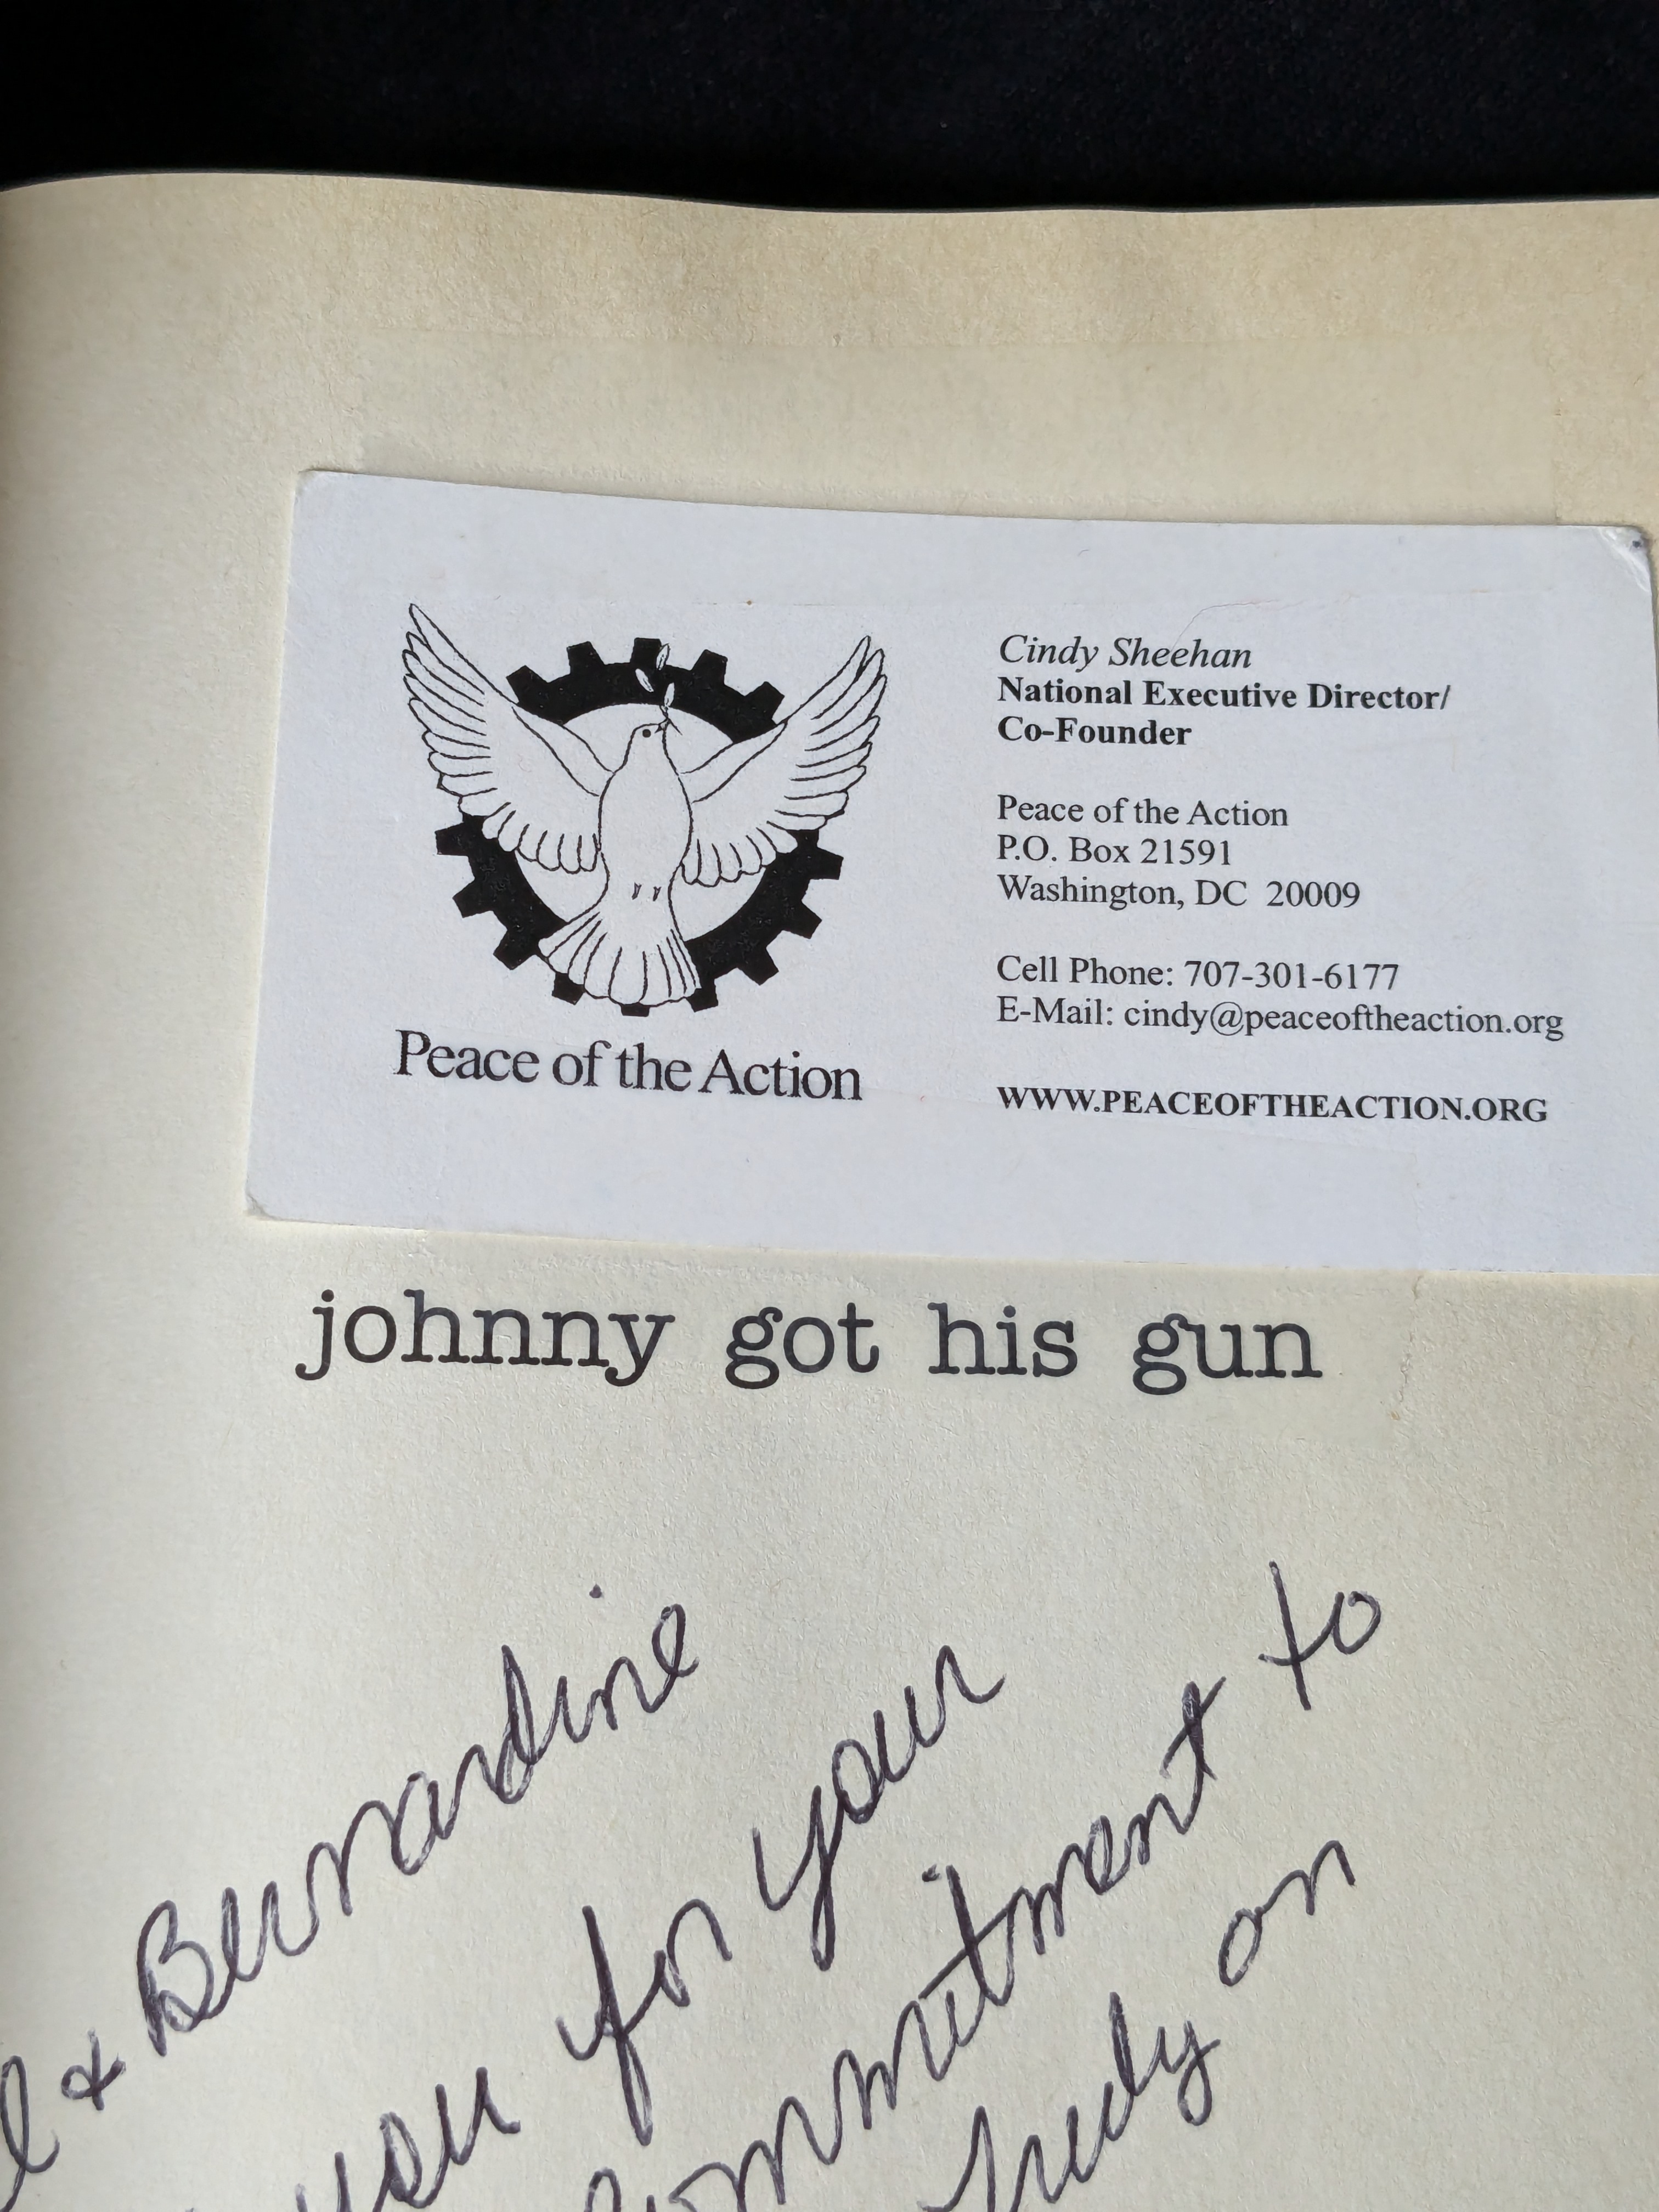 Peace of the Action
Cindy Sheehan
National Executive Director/
Co-Founder
Peace of the Action
P.O. Box 21591
Washington, DC 20009
Cell Phone: 707-301-6177
E-Mail: cindy@peaceoftheaction.org
WWW.PEACEOFTHEACTION.ORG
johnny got his gun
& Bernardine
you for your
commitment to
on